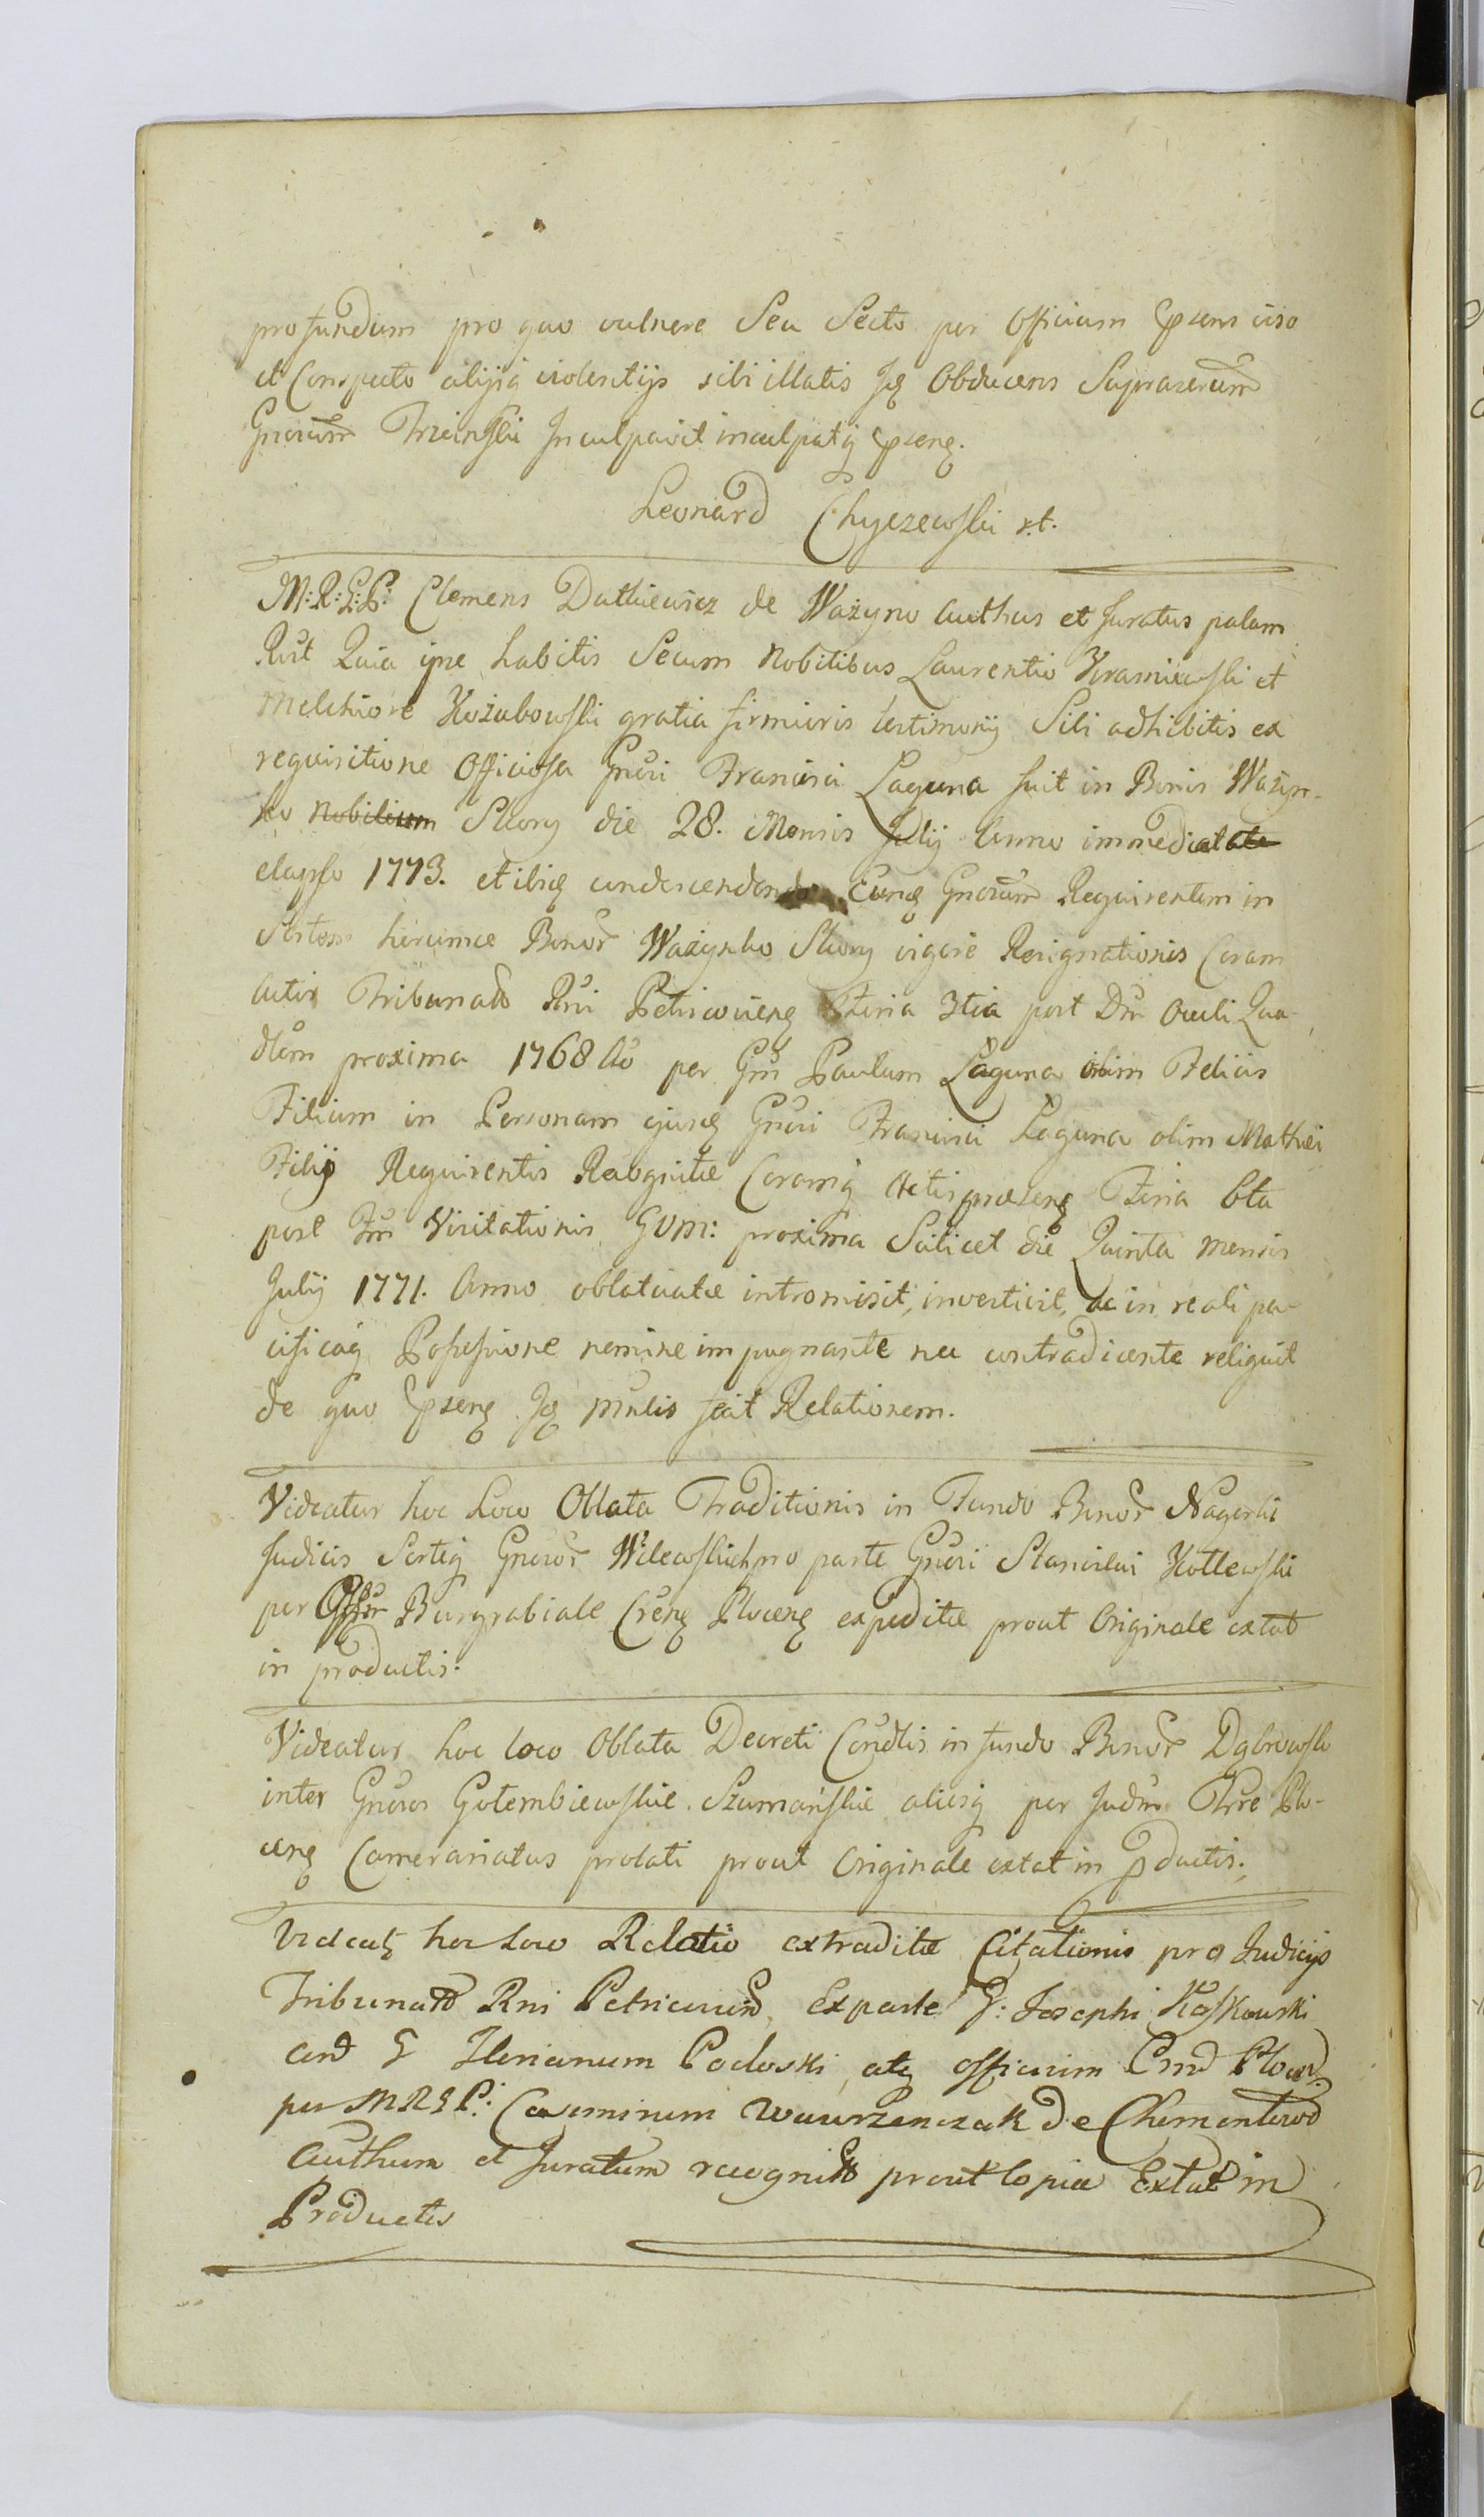 profundum pro quo vulnere Seu Secto per Officium Epsens viso
et Conspecto alijsq violentijs sibi illatis Jq Obducens Suprascrum
Gnosum Trzcinski Inculpavit inculpatq pseng.
Leonard Chyczewski st.
M: R: G: P: Clemens Dutkiewicz de Ważyno Authus et Juratus palam
Rcut Quia ipse habitis Secum Nobilibus Laurentio Kraniewski et
Melchiore Kożubowski gratia firmioris testimonij Sibi adhibitis ex
requisitione Officiosa Gnosi Francisci Laguna fuit in Bonis Ważyn-
ko Nobilium Skory die 28. Mensis Julij Anno immediate
elapso 1773. et ibiq condescendendo Eunq Gnosum Requirentem in
Sortem hicumce Bonor Ważynko Skory vigore Resignationis Coram
Actis Tribunals Rni Petricoviens Feria 3tia post Dm Oculi Qua-
dlem proxima 1768 Ao per Gm Paulum Laguna olim Felicis
Filium in Personam ejusq Gnosi Francisci Laguna olim Mathei
Filij Requirentis Recognitæ Coramq Actis præsens Feria 6ta
post Fm Visitationis GVM: proxima Scilicet die Quinta mensis
Julij 1771. Anno oblatatæ intromisit, investivit, ac in reali pa-
cificaq Possessione nemine impugnante nec contradicente reliquit
de quo pseng Jq pnulis fecit Relationem.
Videatur hoc Loco Oblata Traditionis in Fundo Bonor Nagorki
Judicis Sortiq Gnosor Wilewskich pro parte Gnosi Stanislai Kotlewski
per Offm Burgrabiale Creng Ploceng expeditæ prout Originale extat
in productis.
Videatur hoc loco Oblata Decreti Condlis in fundo Bonor Dąbrowsko
inter Gnosos Gołembiewskie Szumańskie aliosq per Judm Trre Plo-
ceng Camerariatus prolati prout Originale extat in pductis.
Videatq hoc Loco Relatio extraditæ Citationis pro Judicijs
Tribunals Rni Petricovien, Ex parte G: Josephi Kosskowski
cand G Florianum Podoski, atq officium Crnd Plocen
per M R G P: Casimirum Wawrzenczak De Chementowo
Authum et Juratum recognits prout Copia Extat in
Productis